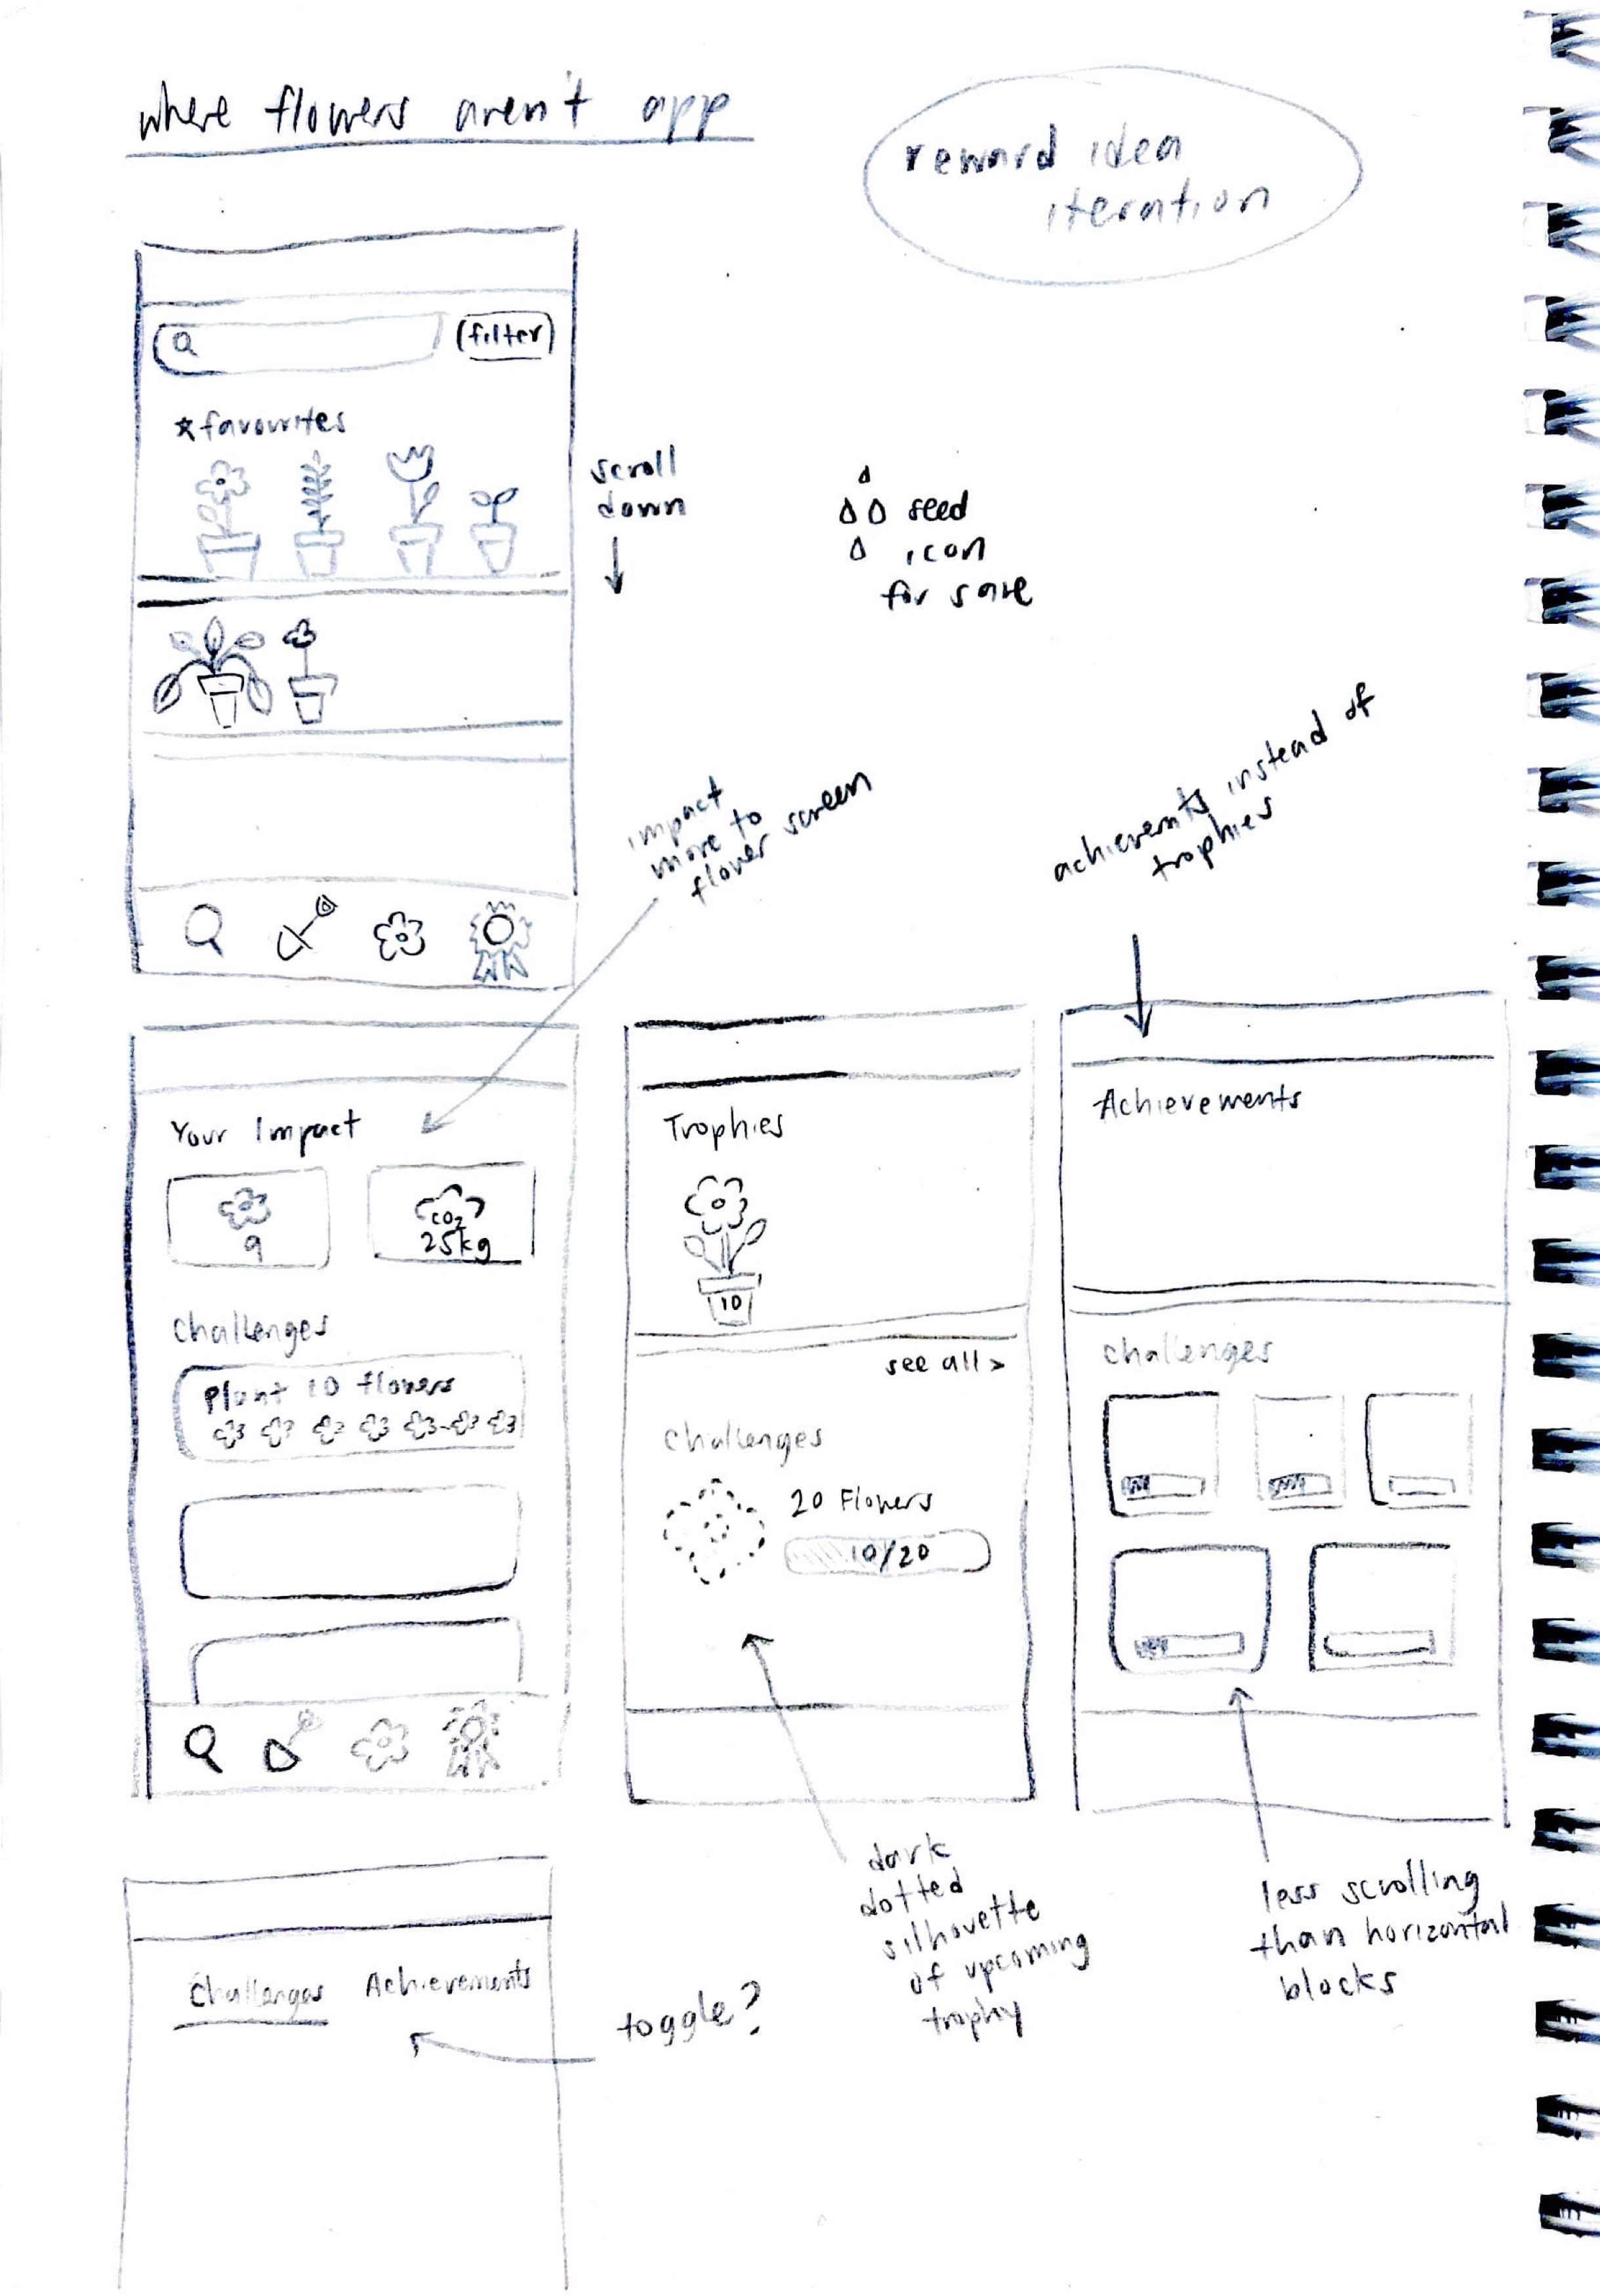 where flowers aren't app
reward idea
iteration
(filter)
favourites
scroll
down
seed
icon
for save
impact
move to
flower screen
achievements instead of
trophies
Your Impact
9
CO2
25kg
Challenges
Plant 10 flowers
Trophies
10
see all >
Challenges
20 Flowers
10/20
Achievements
Challenges
dark
dotted
silhouette
of upcoming
trophy
less scrolling
than horizontal
blocks
Challenges Achievements
toggle?